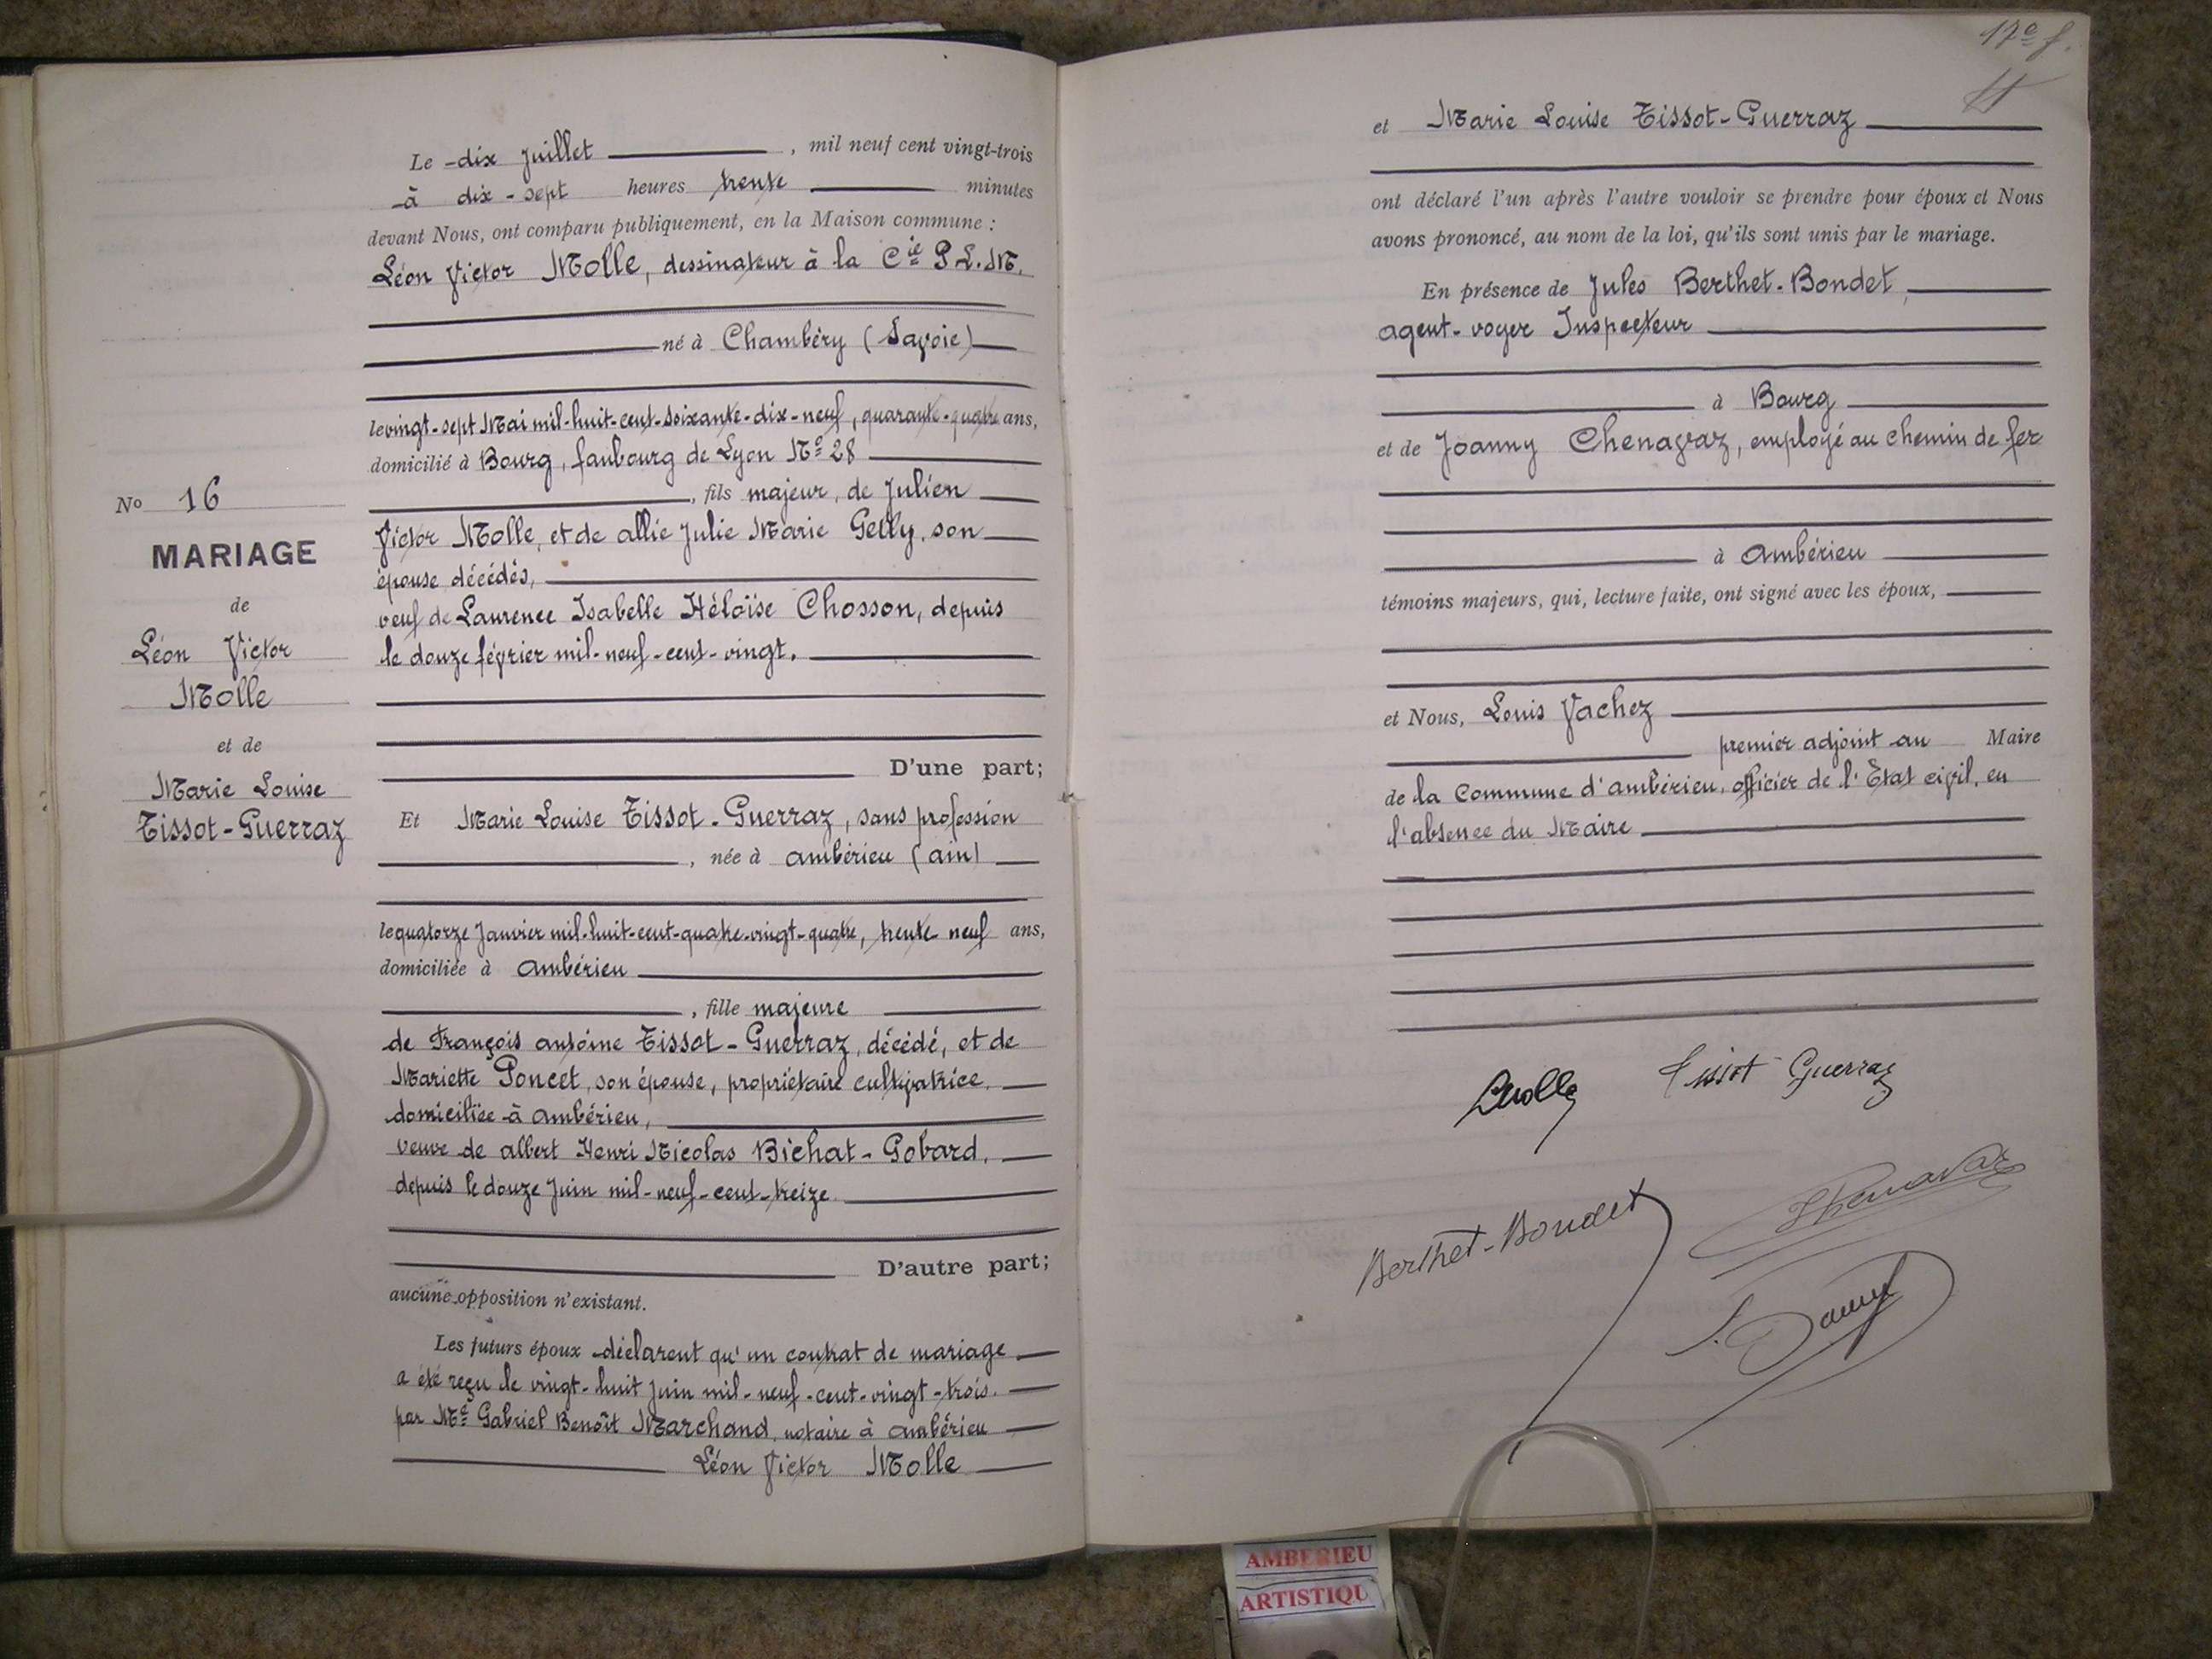 Le dix Juillet, mil neuf cent vingt-trois
à dix-sept heures trente minutes
devant Nous, ont comparu publiquement, en la Maison commune :
Léon Victor Molle, dessinateur à la Cie P.L.M.
né à Chambéry (Savoie)
le vingt-sept Mai mil-huit-cent-soixante-dix-neuf, quarante-quatre ans,
domicilié à Bourg, faubourg de Lyon No 28
, fils majeur, de Julien
Victor Molle, et de allie Julie Marie Gelly, son
épouse décédés,
veuf de Laurence Isabelle Héloïse Chosson, depuis
le douze février mil-neuf-cent-vingt.
D'une part;
Et Marie Louise Tissot-Guerraz, sans profession
, née à ambérieu (ain)
le quatorze Janvier mil-huit-cent-quatre-vingt-quatre, trente-neuf ans,
domiciliée à ambérieu
, fille majeure
de François antoine Tissot-Guerraz, décédé, et de
Mariette Poncet, son épouse, propriétaire cultivatrice,
domiciliée à ambérieu,
veuve de albert Henri Nicolas Bichat-Gobard,
depuis le douze Juin mil-neuf-cent-treize.
D'autre part;
aucune opposition n'existant.
Les futurs époux déclarent qu'un contrat de mariage
a été reçu le vingt-huit Juin mil-neuf-cent-vingt-trois.
par Me Gabriel Benoît Marchand, notaire à ambérieu
Léon Victor Molle
No 16
MARIAGE
de
Léon Victor
Molle
et de
Marie Louise
Tissot-Guerraz
17e f.
et Marie Louise Tissot-Guerraz
ont déclaré l'un après l'autre vouloir se prendre pour époux et Nous
avons prononcé, au nom de la loi, qu'ils sont unis par le mariage.
En présence de Jules Berthet-Bondet,
agent-voyer Inspecteur
à Bourg
et de Joanny Chenavaz, employé au chemin de fer
à ambérieu
témoins majeurs, qui, lecture faite, ont signé avec les époux,
et Nous, Louis Vachez
premier adjoint au Maire
de la Commune d'ambérieu, officier de l'État civil, en
l'absence du Maire
LMolle
Tissot-Guerraz
Berthet-Bondet
Chenavaz
AMBERIEU
ARTISTIQU